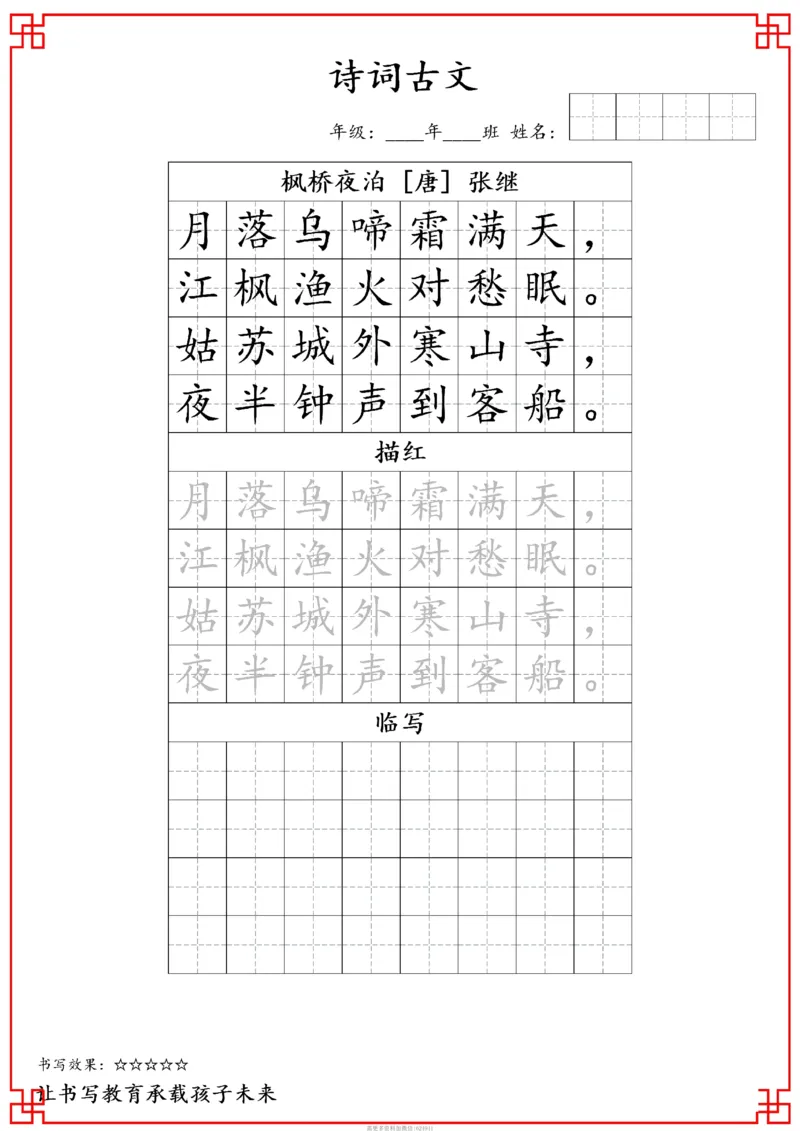 诗词古文
年级：____年____班 姓名：
枫桥夜泊 [唐] 张继
月落乌啼霜满天，
江枫渔火对愁眠。
姑苏城外寒山寺，
夜半钟声到客船。
描红
月落乌啼霜满天，
江枫渔火对愁眠。
姑苏城外寒山寺，
夜半钟声到客船。
临写
书写效果：☆☆☆☆☆
让书写教育承载孩子未来